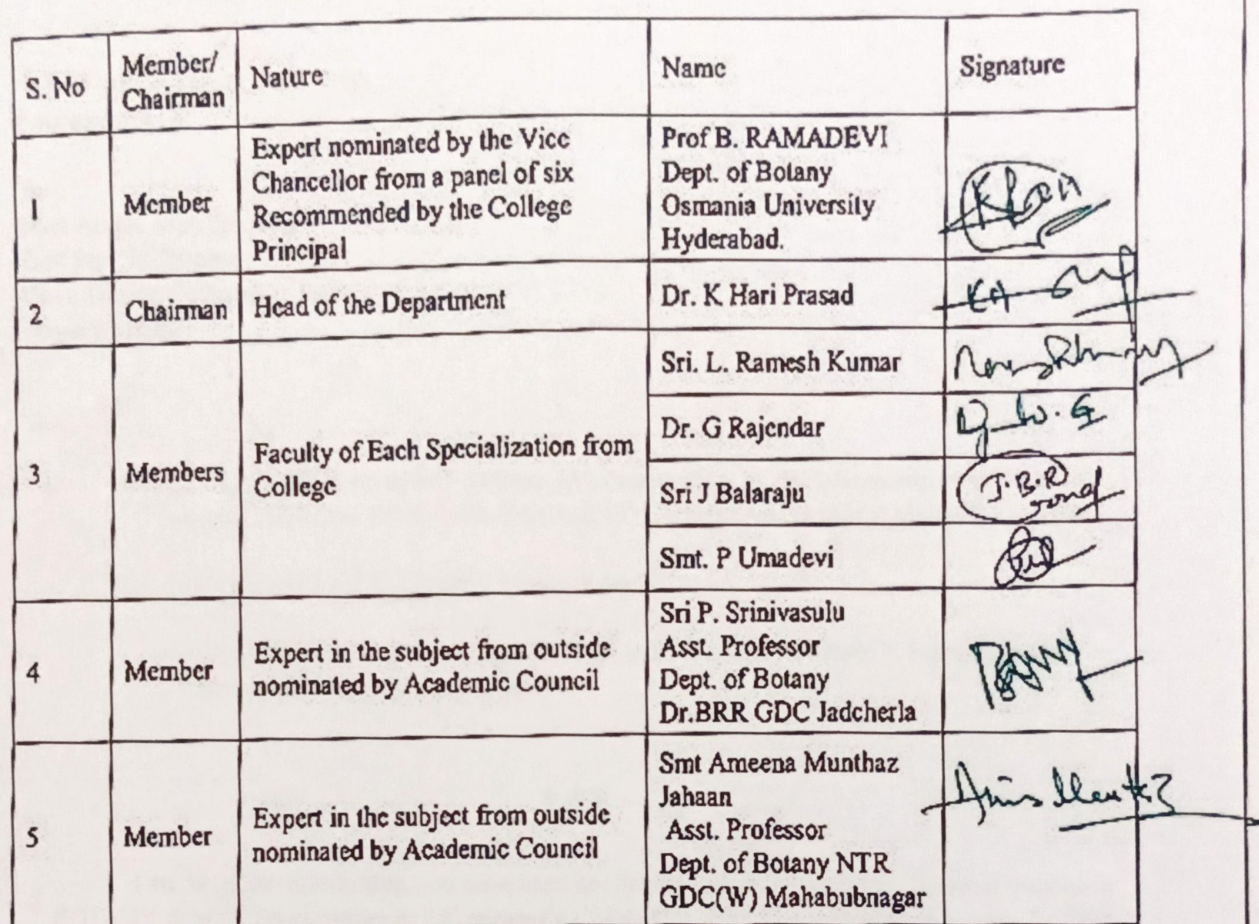 S. No
Member/
Chairman
Nature
Name
Signature
1
Member
Expert nominated by the Vice
Chancellor from a panel of six
Recommended by the College
Principal
Prof B. RAMADEVI
Dept. of Botany
Osmania University
Hyderabad.
2
Chairman
Head of the Department
Dr. K Hari Prasad
3
Members
Faculty of Each Specialization from
College
Sri. L. Ramesh Kumar
Dr. G Rajendar
Sri J Balaraju
J.B.R
Smt. P Umadevi
4
Member
Expert in the subject from outside
nominated by Academic Council
Sri P. Srinivasulu
Asst. Professor
Dept. of Botany
Dr.BRR GDC Jadcherla
5
Member
Expert in the subject from outside
nominated by Academic Council
Smt Ameena Munthaz
Jahaan
Asst. Professor
Dept. of Botany NTR
GDC(W) Mahabubnagar